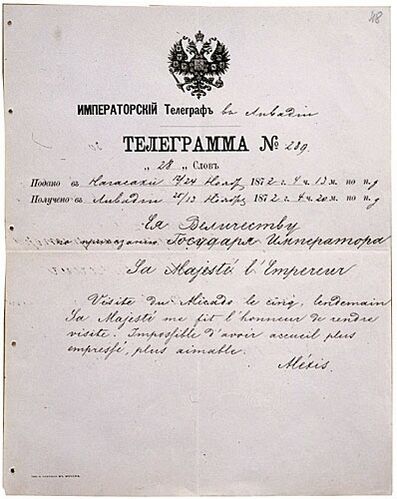 48
ИМПЕРАТОРСКІЙ Телеграфъ въ Ливадіи
ТЕЛЕГРАММА № 289.
„ 28 „ Словъ
Подано въ Нагасаки 12/24 Ноября 1872 г. 4 ч. 13 м. по п.д
Получено въ Ливадіи 1872 г. 4 ч. 20 м. по п.д
Ея Величеству
по приказанію Государя Императора
Sa Majesté l'Empereur
Visite du Micado le cinq, lendemain
Sa Majesté me fit l'honneur de rendre
visite. Impossible d'avoir accueil plus
empressé, plus aimable.
Alexis.